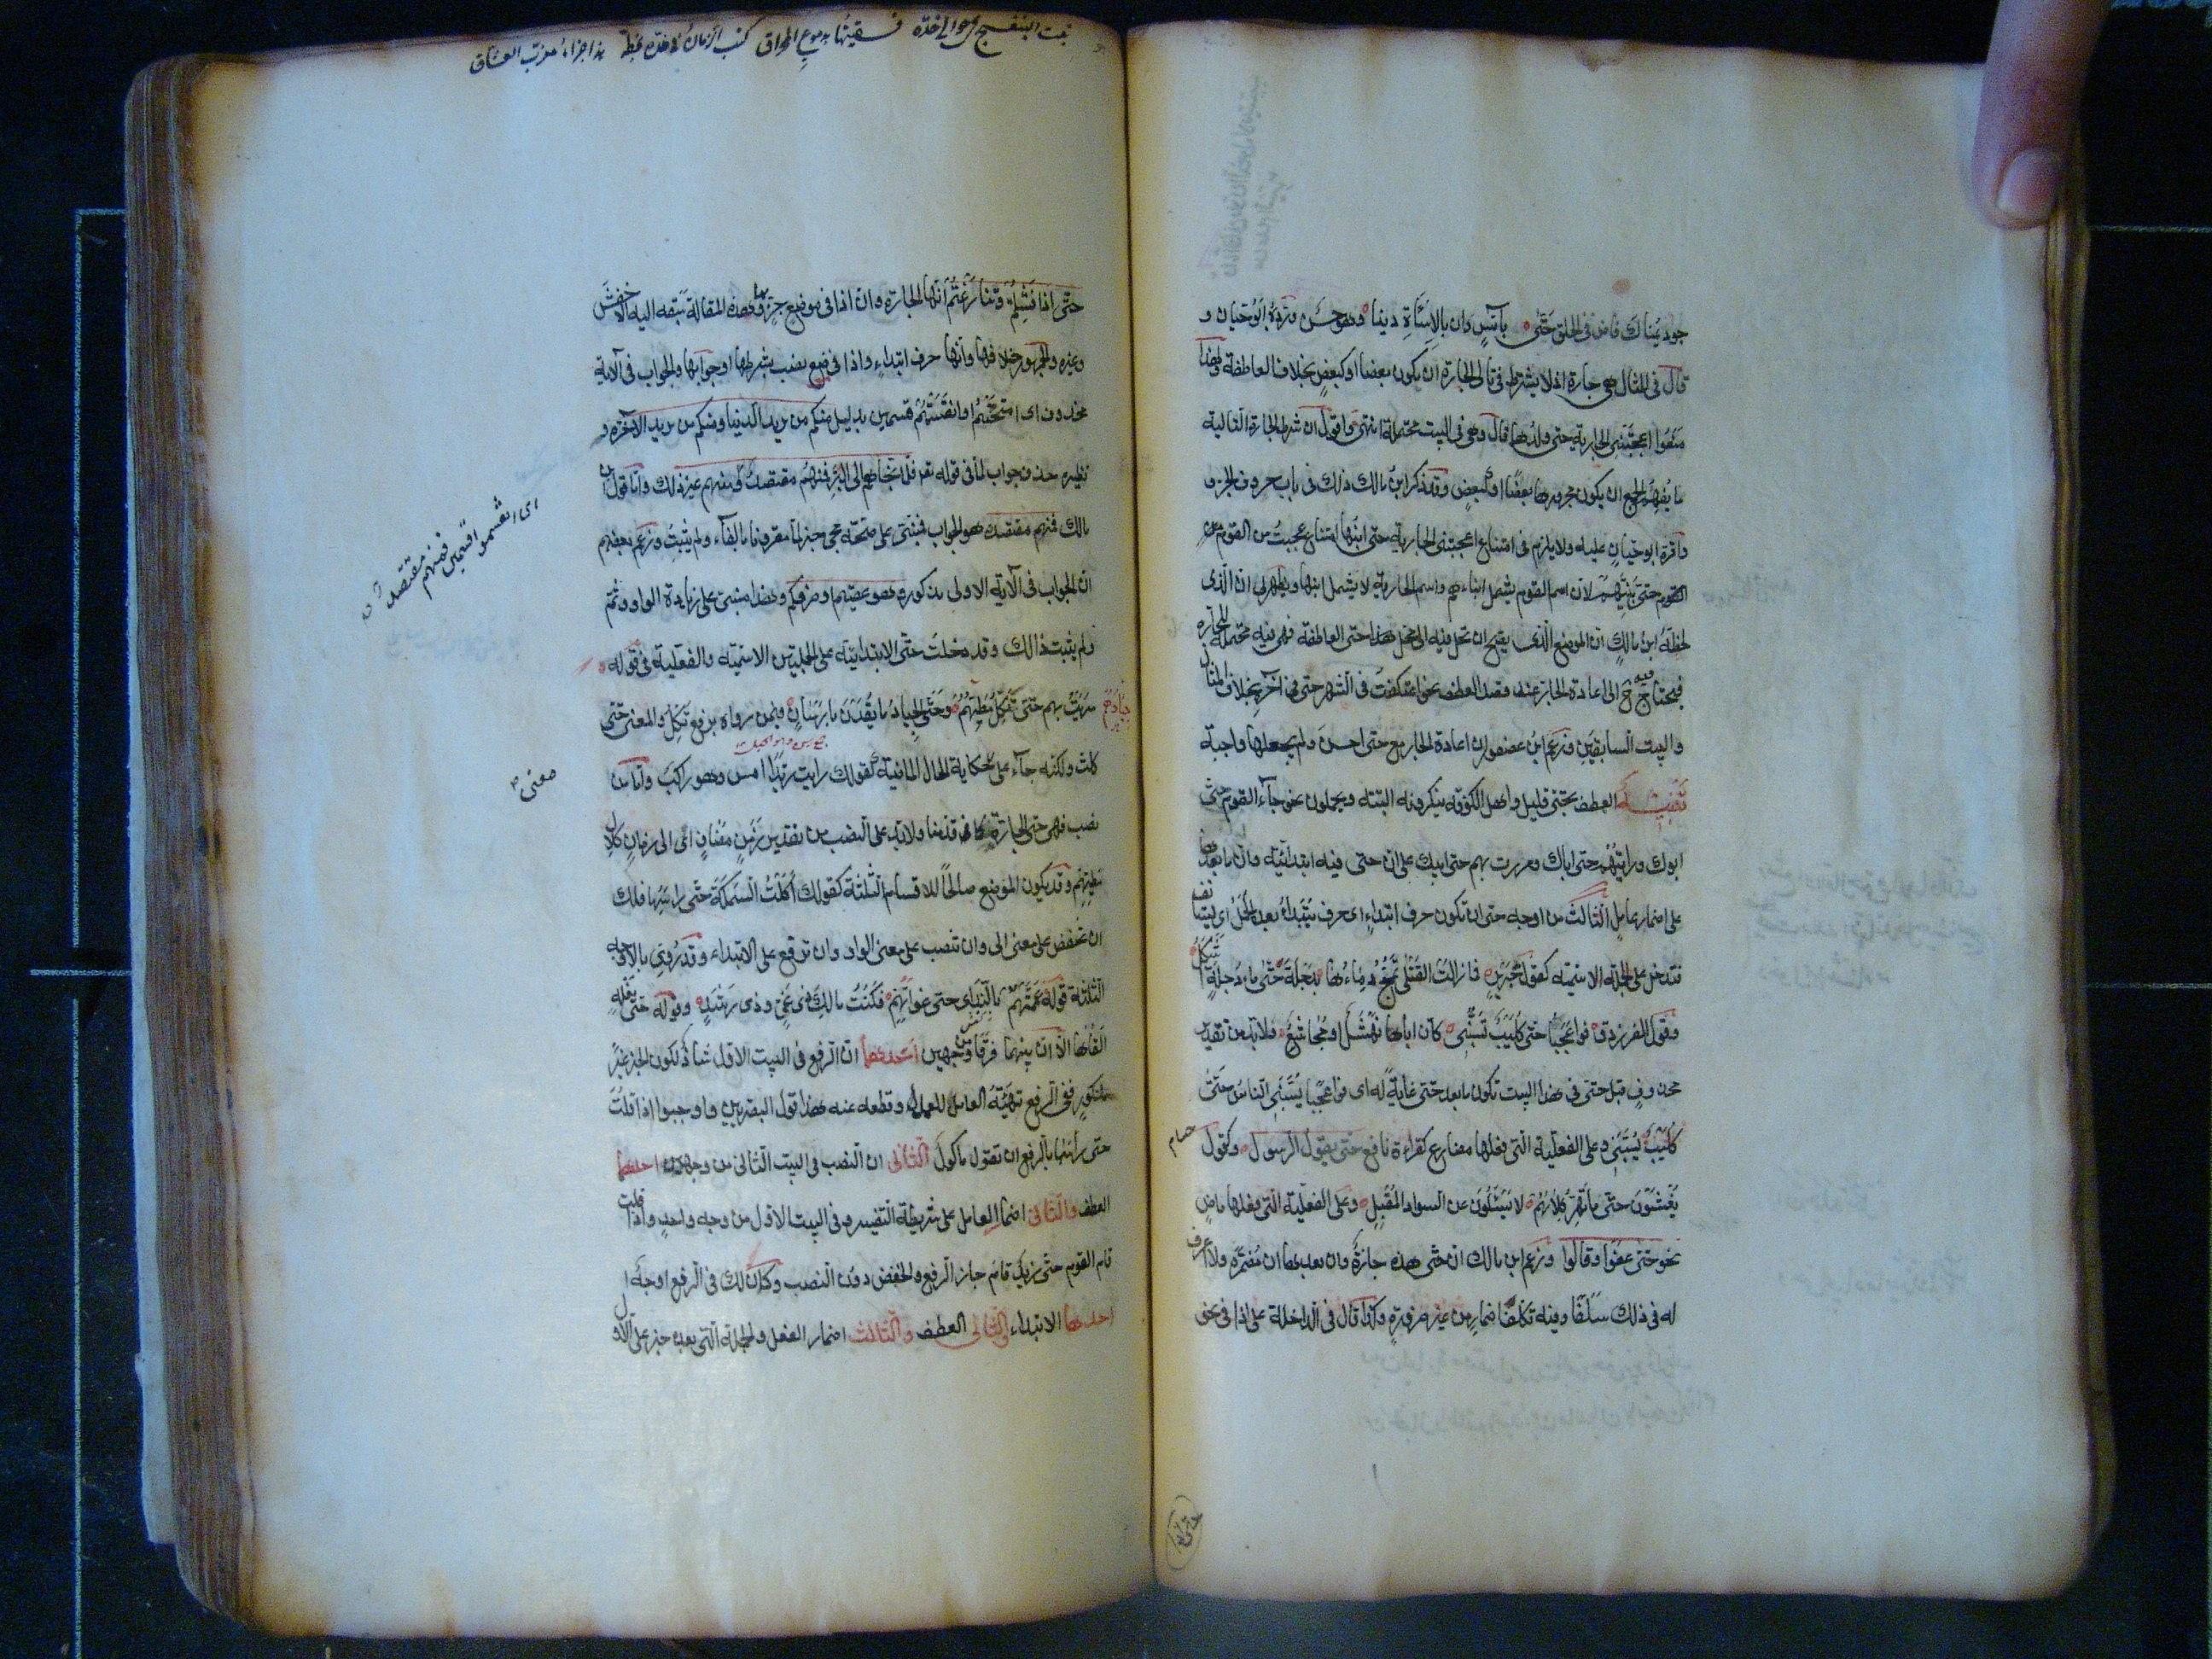 جود يمناك فاض في الخلق حتى بآئس دان بالاساءة دينا وهو حسن ورده ابو حيان و
قال في المثال هي جارة اذ لا يشترط في تالى الجارة ان يكون بعضا او كبعض بخلاف العاطفة ولهذا
منعوا اعجبتني الجارية حتى ولدها قال وهي في البيت محتملة انتهى واقول ان شرط الجارة التالية
ما يفهم الجمع ان يكون مجرورها بعضا او كبعض وقد ذكر ابن مالك ذلك في باب حروف الجر و
واقره ابو حيان عليه ولا يلزم في امتناع اعجبتني الجارية حتى ابنها امتناع عجبت من القوم
حتى بنيهم لان اسم القوم يشمل ابناءهم واسم الجارية لا يشمل ابنها ويظهر لي ان الذي
لحظه ابن مالك ان الموضع الذي يصح ان تحل فيه الى محل حتى العاطفة فهي فيه محتملة للجارة
فيحتاج ح الى اعادة الجار عند قصد العطف نحو اعتكفت في الشهر حتى في آخره بخلاف المثال
والبيت السابقين وزعم ابن عصفور ان اعادة الجار مع حتى احسن ولم يجعلها واجبة
تنبيه العطف بحتى قليل واهل الكوفة ينكرونه البتة ويحملون نحو جآء القوم حتى
ابوك ورايتهم حتى اباك ومررت بهم حتى ابيك على ان حتى فيه ابتدائية وان ما بعدها
على اضمار عامل الثالث من اوجه حتى ان تكون حرف ابتداء اى حرف تبتدأ بعده الجمل اى تستانف
فتدخل على الجملة الاسمية كقول جرير فما زالت القتلى تمج دماءها بدجلة حتى ماء دجلة اشكل
وقول الفرزدق فوا عجبا حتى كليب تسبني كان اباها نهشل او مجاشع فلا بد من تقدير
محذوف قبل حتى في هذا البيت يكون ما بعد حتى غاية له اى فوا عجبا يسبني الناس حتى
كليب يسبني وعلى الفعلية التي فعلها مضارع كقراءة نافع حتى يقول الرسول وكقول حسان
يغشون حتى ما تهر كلابهم لا يسئلون عن السواد المقبل وعلى الفعلية التي فعلها ماض
نحو حتى عفوا وقالوا وزعم ابن مالك ان حتى هذه جارة وان بعدها ان مضمرة ولا اعرف
له في ذلك سلفا وفيه تكلف اضمار من غير ضرورة وكذا قال في الداخلة على اذا في نحو
حتى اذا
نبت البنفسج خده فسقيتها بدموع كتب الزمان خده بخطه هذا جزاء معذب العشاق
حتى اذا فشلتم وتنازعتم انها الجارة وان اذا في موضع جر بها وهذه المقالة سبقه اليه الاخفش
وغيره والجمهور خلافها وانها حرف ابتداء واذا في موضع نصب بشرطها او جوابها والجواب في الآية
محذوف اى امتحنتم او انقسمتم قسمين بدليل منكم من يريد الدنيا ومنكم من يريد الآخرة و
نظيره حذف جواب لما في قوله تعـ فلما نجاهم الى البر فمنهم مقتصد اى ومنهم غير ذلك واما قول ابن
مالك فمنهم مقتصد هو الجواب فمبني على صحة مجئ خبر لما مقرونا بالفآء ولم يثبت وزعم بعضهم
ان الجواب في الآية الاولى مذكور وهو عصيتم او صرفكم وهذا مبني على زيادة الواو وثم
ولم يثبت ذلك وقد دخلت حتى الابتدائية على الجملتين الاسمية والفعلية في قوله
سريت بهم حتى تكل مطيهم وحتى الجياد ما يقدن بارسان فيمن رواه برفع تكل والمعنى حتى
كلت ولكنه جآء على حكاية الحال الماضية كقولك رايت زيدا امس وهو راكب واما من
نصب فهي حتى الجارة كما قدمنا ولا بد على النصب من تقدير زمن مضاف اى الى زمان كلال
مطيهم وقد يكون الموضع صالحا للاقسام الثلثة كقولك اكلت السمكة حتى راسها فلك
ان تخفض على معنى الى وان تنصب على معنى الواو وان ترفع على الابتداء وقد روى بالاوجه
الثلثة قوله عممتهم بالندى حتى غواتهم فكنت مالك ذى غى وذى رشد وقوله حتى نعله
القاها الا ان بينهما فرقا من وجهين احدهما ان الرفع في البيت الاول شاذ لكون الخبر غير
مذكور ففي الرفع تهيئة العامل للعمل وقطعه عنه هذا قول البصريين واوجبوا اذا قلت
حتى رأسها بالرفع ان تقول ماكول الثاني ان النصب في البيت الثاني من وجهين احدهما
العطف والثاني اضمار العامل على شريطة التفسير وفي البيت الاول من وجه واحد واذا قلت
قام القوم حتى زيد قام جاز الرفع والخفض دون النصب وكان لك في الرفع اوجه
احدها الابتداء والثاني العطف والثالث اضمار الفعل والجملة التي بعده خبر على الاول
اى انقسموا قسمين فمنهم مقتصد
معنى